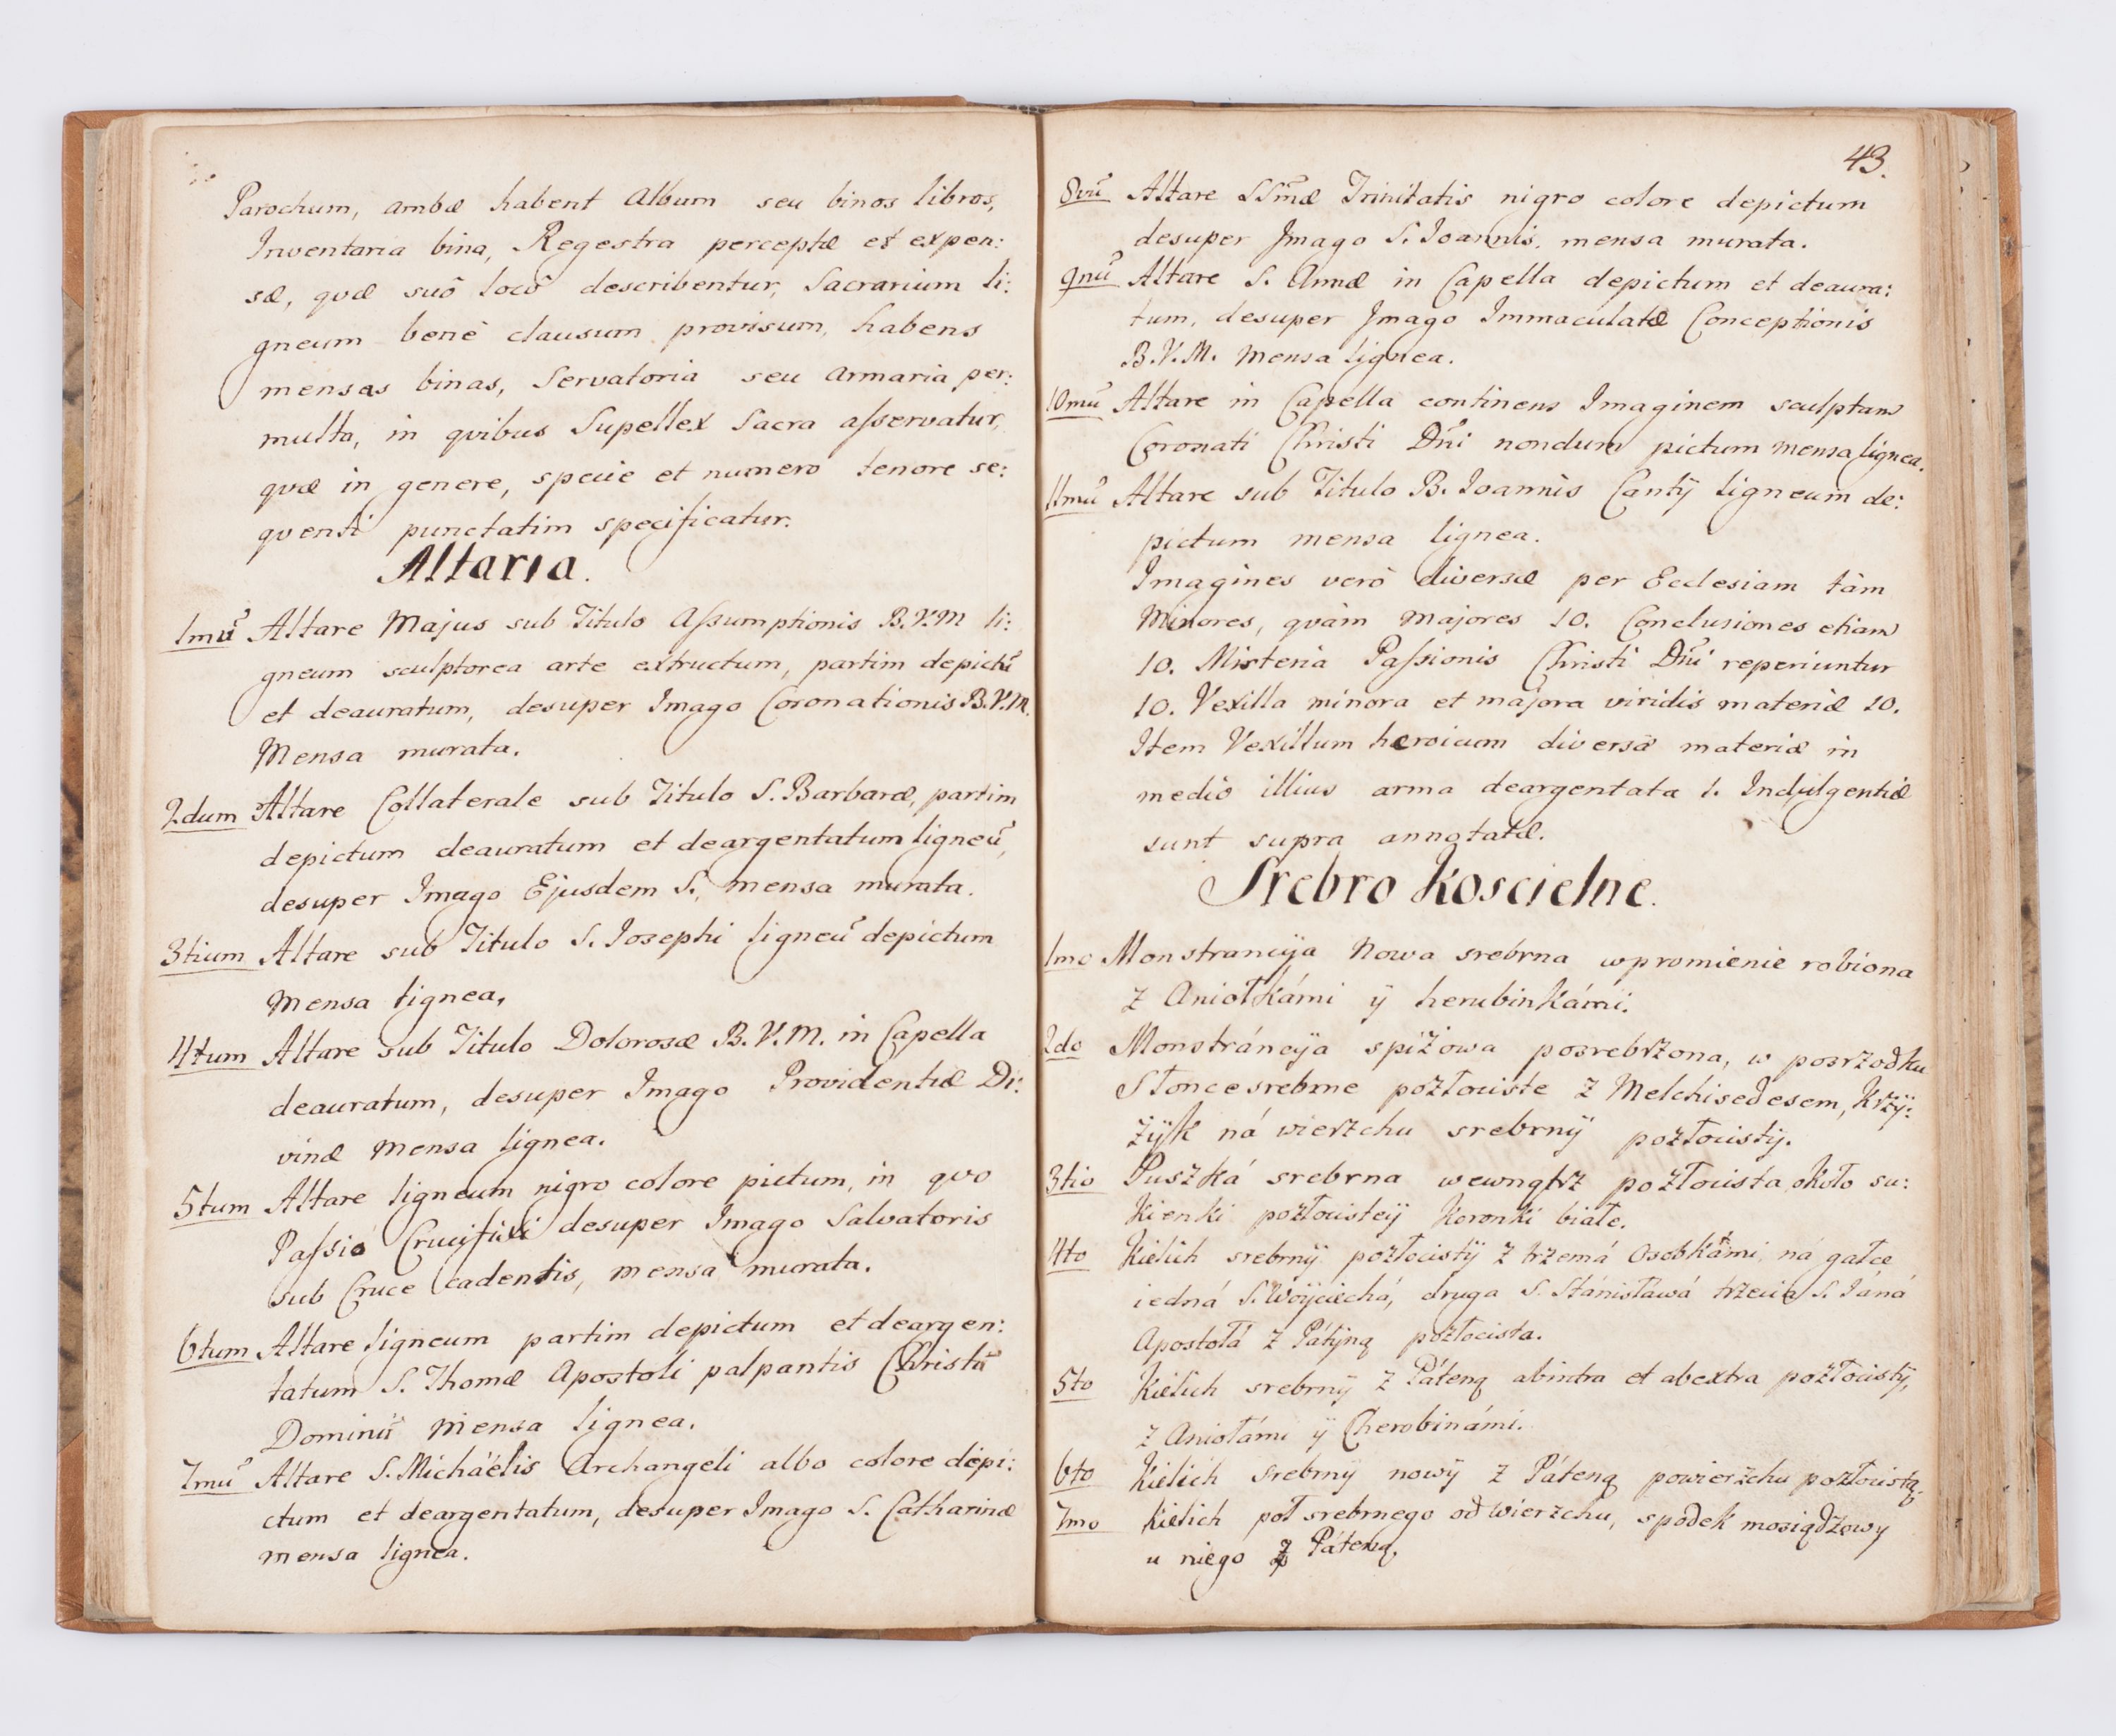 Parochum, ambæ habent Album seu binos libros,
Inventaria bina, Regestra perceptæ et expen:
sæ, qvæ suô locô describentur, Sacrarium li:
gneum benè clausum provisum, habens
mensas binas, Servatoria seu Armaria per:
multa, in qvibus Supellex Sacra aſservatur,
qvæ in genere, specie et numero tenore se:
qventi punctatim specificatur.
Altaria.
1mũ Altare Majus sub Titulo Aſsumptionis B.V.M li:
gneum sculptorea arte extructum, partim depictũ
et deauratum, desuper Imago Coronationis B.V.M.
Mensa murata.
2dum Altare Collaterale sub Titulo S. Barbaræ, partim
depictum deauratum et deargentatum ligneũ,
desuper Imago Ejusdem S. mensa murata.
3tium Altare sub Titulo S. Iosephi ligneũ depictum
Mensa lignea,
4tum Altare sub Titulo Dolorosæ B.V.M. in Capella
deauratum, desuper Imago Providentiæ Di:
vinæ Mensa lignea.
5tum Altare ligneum nigro colore pictum, in qvo
Paſsio Crucifixi desuper Imago Salvatoris
sub Cruce cadentis, mensa murata.
6tum Altare ligneum partim depictum et deargen:
tatum S. Thomæ Apostoli palpantis Christũ
Dominũ Mensa lignea.
7mũ Altare S. Michaëlis Archangeli albo colore depi:
ctum et deargentatum, desuper Imago S. Catharinæ
mensa lignea.
43.
8vũ Altare SSmæ Trinitatis nigro colore depictum
desuper Imago S. Ioannis, mensa murata.
9nũ Altare S. Annæ in Capella depictum et deaura:
tum, desuper Imago Immaculatæ Conceptionis
B.V.M. Mensa lignea.
10mũ Altare in Capella continens Imaginem sculptam
Coronati Christi Dñi nondum pictum mensa lignea.
11mũ Altare sub Titulo B. Ioannis Cantÿ ligneum de:
pictum mensa lignea.
Imagines verò diversæ per Ecclesiam tàm
Minores, qvàm Majores 10. Conclusiones etiam
10. Misteria Paſsionis Christi Dñi reperiuntur
10. Vexilla minora et majora viridis materiæ 10.
Item Vexillum heroicum diversæ materiæ in
mediô illius arma deargentata 1. Indulgentiæ
sunt supra annotatæ.
Srebro Koscielne.
1mo Monstrancÿa Nowa srebrna w promienie robiona
z Aniołkámi ÿ herubinkámi.
2do Monstráncÿa spiżowa posrebrzona, w posrzodku
Słonce srebrne pozłociste z Melchisedesem, Krzÿ:
żÿk ná wierzchu srebrnÿ pozłocistÿ.
3tio Puszká srebrna wewnątrz pozłocista, około su:
kienki pozłocisteÿ Koronki białe.
4to Kielich srebrnÿ pozłocistÿ z trzemá Osobkámi ná gałce
iedná S. Woÿciechá, druga S. Stánisławá trzecia S. Iáná
Apostołá z Pátÿną pozłocista.
5to Kielich srebrnÿ z Páteną abintra et abextra pozłocistÿ,
z Aniołámi ÿ Cherobinámi.
6to Kielich srebrnÿ nowÿ z Páteną powierzchu pozłocistą.
7mo Kielich poł srebrnego od wierzchu, spodek mosiądzowy
u niego z Páteną.